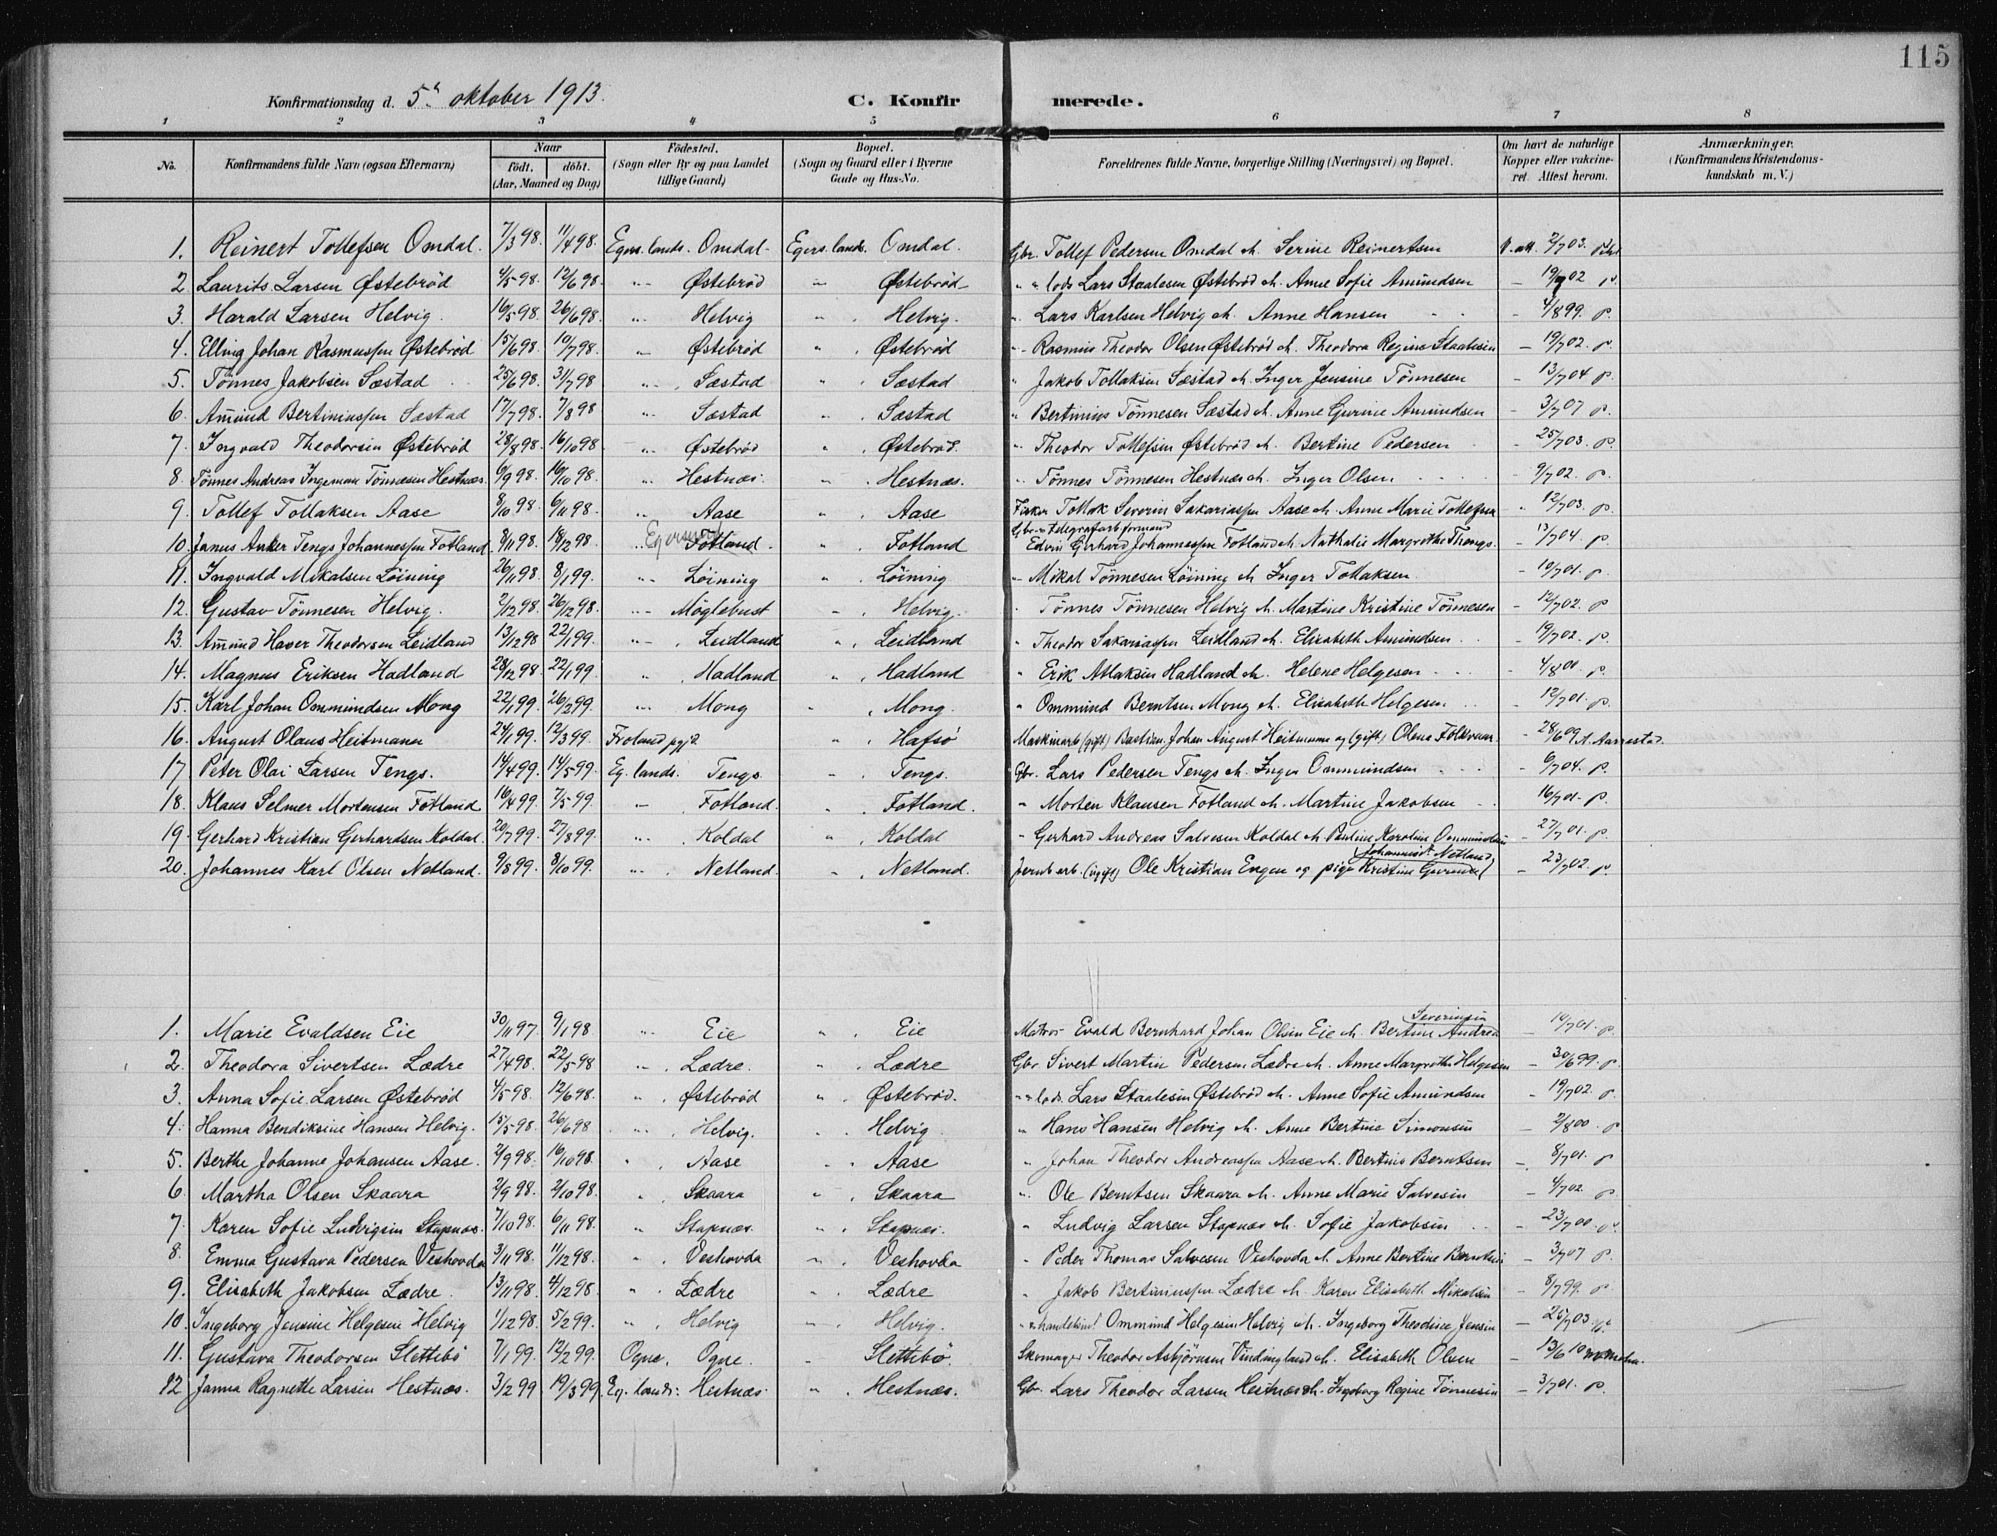 115
Konfirmationsdag d. 5te oktober 1913. C. Konfirmerede.
1 2 3 4 5 6 7 8
No. Konfirmandens fulde Navn (ogsaa Efternavn) Naar födt. döbt. (Aar, Maaned og Dag) Födested. (Sogn eller By og paa Landet tillige Gaard) Bopæl. (Sogn og Gaard eller i Byerne Gade og Hus-No. Forældrenes fulde Navne, borgerlige Stilling (Næringsvei) og Bopæl. Om havt de naturlige Kopper eller vakcineret. Attest herom. Anmærkninger. (Konfirmandens Kristendomskundskab m. V.)
1. Reinert Tollefsen Omdal. 7/3 98. 11/4 98. Egers. lands. Omdal. Egers. lands. Omdal. Gbr. Tollef Pedersen Omdal & h. Serine Reinertsen V. att. 2/7 03.
2. Laurits Larsen Østebrød 4/5 98. 12/6 98. " Østebrød " Østebrød " lods Lars Staalesen Østebrød & h. Anne Sofie Amundsen - 19/7 02 P.
3. Harald Larsen Helvig. 16/5 98. 26/6 98. " Helvig " Helvig. " Lars Karlsen Helvig & h. Anne Hansen - 4/8 99. P.
4. Elling Johan Rasmussen Østebrød 15/6 98. 10/7 98. " Østebrød " Østebrød " Rasmus Theodor Olsen Østebrød & h. Theodora Regine Staalesen - 19/7 02. P.
5. Tönnes Jakobsen Sæstad 25/6 98. 31/7 98 " Sæstad " Sæstad " Jakob Tollaksen Sæstad & h. Inger Jensine Tönnesen - 13/7 04 P.
6. Amund Bertiniussen Sæstad 17/7 98. 7/8 98 " Sæstad " Sæstad " Bertinius Tönnesen Sæstad & h. Anne Gurine Amundsen - 3/7 07 P.
7. Ingvald Theodorsen Østebrød 28/8 98. 16/10 98. " Østebrød " Østebrød. " Theodor Tollefsen Østebrød & h. Bertine Pedersen - 25/7 03. P.
8. Tönnes Andreas Ingeman Tönnesen Hestnæs. 6/9 98. 16/10 98. " Hestnæs. " Hestnæs. " Tönnes Tönnesen Hestnæs & h. Inger Olsen - 9/7 02. P.
9. Tollef Tollaksen Aase 8/10 98. 6/11 98. " Aase " Aase Fisker Tollak Severin Sakariassen Aase & h. Anne Marie Tollefsen - 12/7 03. P.
10. Janus Anker Tengs Johannessen Fotland. 8/11 98. 18/12 98. " Egersund Fotland. " Fotland Gbr. & telegrafarb. formand Edvin Gerhard Johannessen Fotland & h. Nathalie Margrethe Thengs. - 13/7 04. P.
11. Ingvald Mikalsen Löining 26/11 98. 8/1 99. " Löining " Löining " Mikal Tönnesen Löining & h. Inger Tollaksen - 10/7 01. P.
12. Gustav Tönnesen Helvig. 2/12 98. 26/12 98. " Möglebust " Helvig. " Tönnes Tönnesen Helvig & h. Martine Kristine Tönnesen - 12/7 02. P.
13. Amund Haver Theodorsen Leidland 13/12 98 22/1 99. " Leidland " Leidland " Theodor Sakariassen Leidland & h. Elisabeth Amundsen - 19/7 02. P.
14. Magnus Eriksen Hadland 28/12 98. 22/1 99. " Hadland " Hadland " Erik Atlaksen Hadland & h. Helene Helgesen - 4/8 00. P.
15. Karl Johan Ommundsen Mong 22/1 99. 26/2 99. " Mong " Mong. " Ommund Berntsen Mong & h. Elisabeth Helgesen - 12/7 01. P.
16. August Olaus Heitmann 24/1 99. 12/3 99. Froland pgj? " Hafsö Maskinarb. (gift) Bastian Johan August Heitmann og (gift) Olena Folkvman - 28/6 09 A. Aarrestad.
17. Peter Olai Larsen Tengs. 14/4 99. 14/5 99. Eg. lands. Tengs " Tengs. Gbr. Lars Pedersen Tengs & h. Inger Ommundsen - 6/7 04. P.
18. Klaus Selmer Mortensen Fotland 16/4 99. 7/5 99. " Fotland. " Fotland. " Morten Klausen Fotland & h. Martine Jakobsen - 16/7 01. P.
19. Gerhard Kristian Gerhardsen Koldal. 20/7 99. 27/8 99. " Koldal " Koldal " Gerhard Andreas Salvesen Koldal & h. Pauline Karoline Ommundsen - 27/7 01. P.
20. Johannes Karl Olsen Netland. 9/8 99. 8/10 99. " Netland. " Netland. Jernb. arb. (ugift) Ole Kristian Engen og pige Kristine Gurine Johannesdt. Netland - 23/7 02. P.
1. Marie Evaldsen Eie 30/11 97. 9/1 98 " Eie " Eie Matros Evald Bernhard Johan Olsen Eie & h. Bertine Andrea Severinsen - 14/7 01. P.
2. Theodora Sivertsen Lædre 27/4 98. 22/5 98 " Lædre. " Lædre Gbr Sivert Martin Pedersen Lædre & h. Anne Margrethe Helgesen - 30/6 99. P.
3. Anna Sofie Larsen Østebrød 4/5 98. 12/6 98. " Østebrød " Østebrød. " lods. Lars Staalesen Østebrød & h. Anne Sofie Amundsen - 19/7 02. P
4. Hanna Bendiksine Hansen Helvig. 15/5 98. 26/6 98 " Helvig. " Helvig " Hans Hansen Helvig & h. Anne Bertine Simonsen - 2/8 00. P
5. Berthe Johanne Johansen Aase. 2/9 98. 16/10 98. " Aase " Aase " Johan Theodor Andreassen Aase & h. Bertine Berntsen - 8/7 01. P
6. Martha Olsen Skaara 2/9 98. 2/10 98. " Skaara " Skaara " Ole Berntsen Skaara & h. Anne Marie Salvesen - 4/7 02. P
7. Karen Sofie Ludvigsen Stapnæs. 7/10 98. 6/11 98. " Stapnæs. " Stapnæs. " Ludvig Larsen Stapnæs & h. Sofie Jakobsen - 23/7 00. P.
8. Emma Gustava Pedersen Veshovda 3/11 98. 11/12 98. " Veshovda " Veshovda " Peder Thomas Salvesen Veshovda & h. Anne Bertine Berntsen - 3/7 07 P.
9. Elisabeth Jakobsen Lædre. 13/11 98. 4/12 98. " Lædre " Lædre " Jakob Bertiniussen Lædre & h. Karen Elisabeth Mikalsen - 8/7 99. P.
10. Ingeborg Jensine Helgesen Helvig 1/12 98. 5/2 99. " Helvig " Helvig. " & handelsm. Ommund Helgesen Helvig & h. Ingeborg Theodine Jensen - 25/7 03
11. Gustava Theodorsen Slettebö 7/1 99. 12/2 99. Ogne. Ogne. " Slettebö. Skomager Theodor Asbjörnsen Vindingland & h. Elisabeth Olsen - 13/6 10
12. Janna Ragnette Larsen Hestnæs. 3/2 99. 19/3 99. Eg. lands. Hestnæs. " Hestnæs. Gbr. Lars Theodor Larsen Hestnæs & h. Ingeborg Regine Tönnesen - 3/7 01. P.